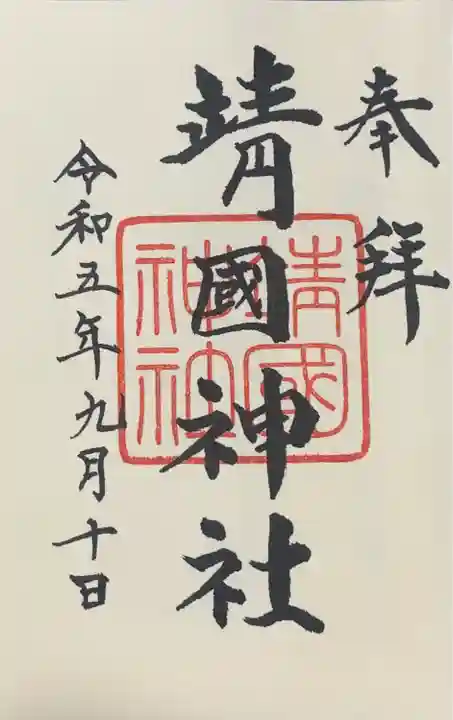 奉拜
靖國神社
靖國
神社
令和五年九月十日